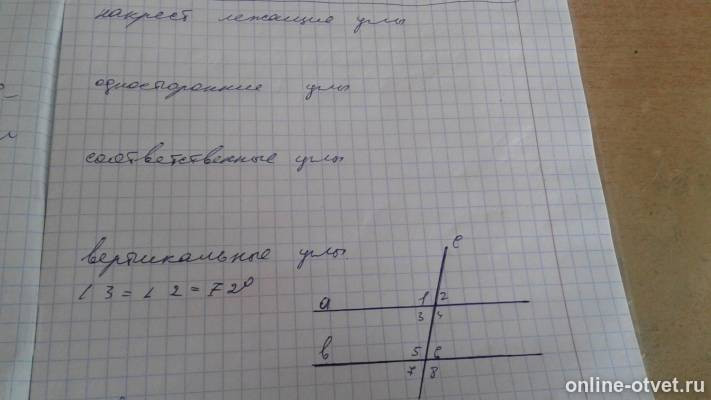 накрест лежащие углы
односторонние углы
соответственные углы
вертикальные углы
∠ 3 = ∠ 2 = 72°
c
a 1 2
3 4
в 5 6
7 8
online-otvet.ru